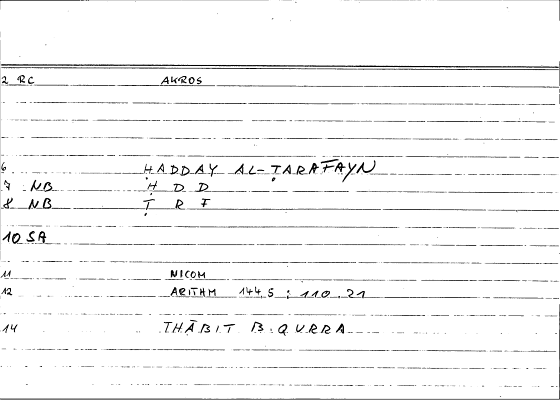 2 RC AKROS
6 ḤADDAY AL-ṬARAFAYN
7 NB Ḥ D D
8 NB Ṭ R F
10 SA
11 NICOM
12 ARITHM 144.5 ; 110.21
14 THĀBIT B. QURRA